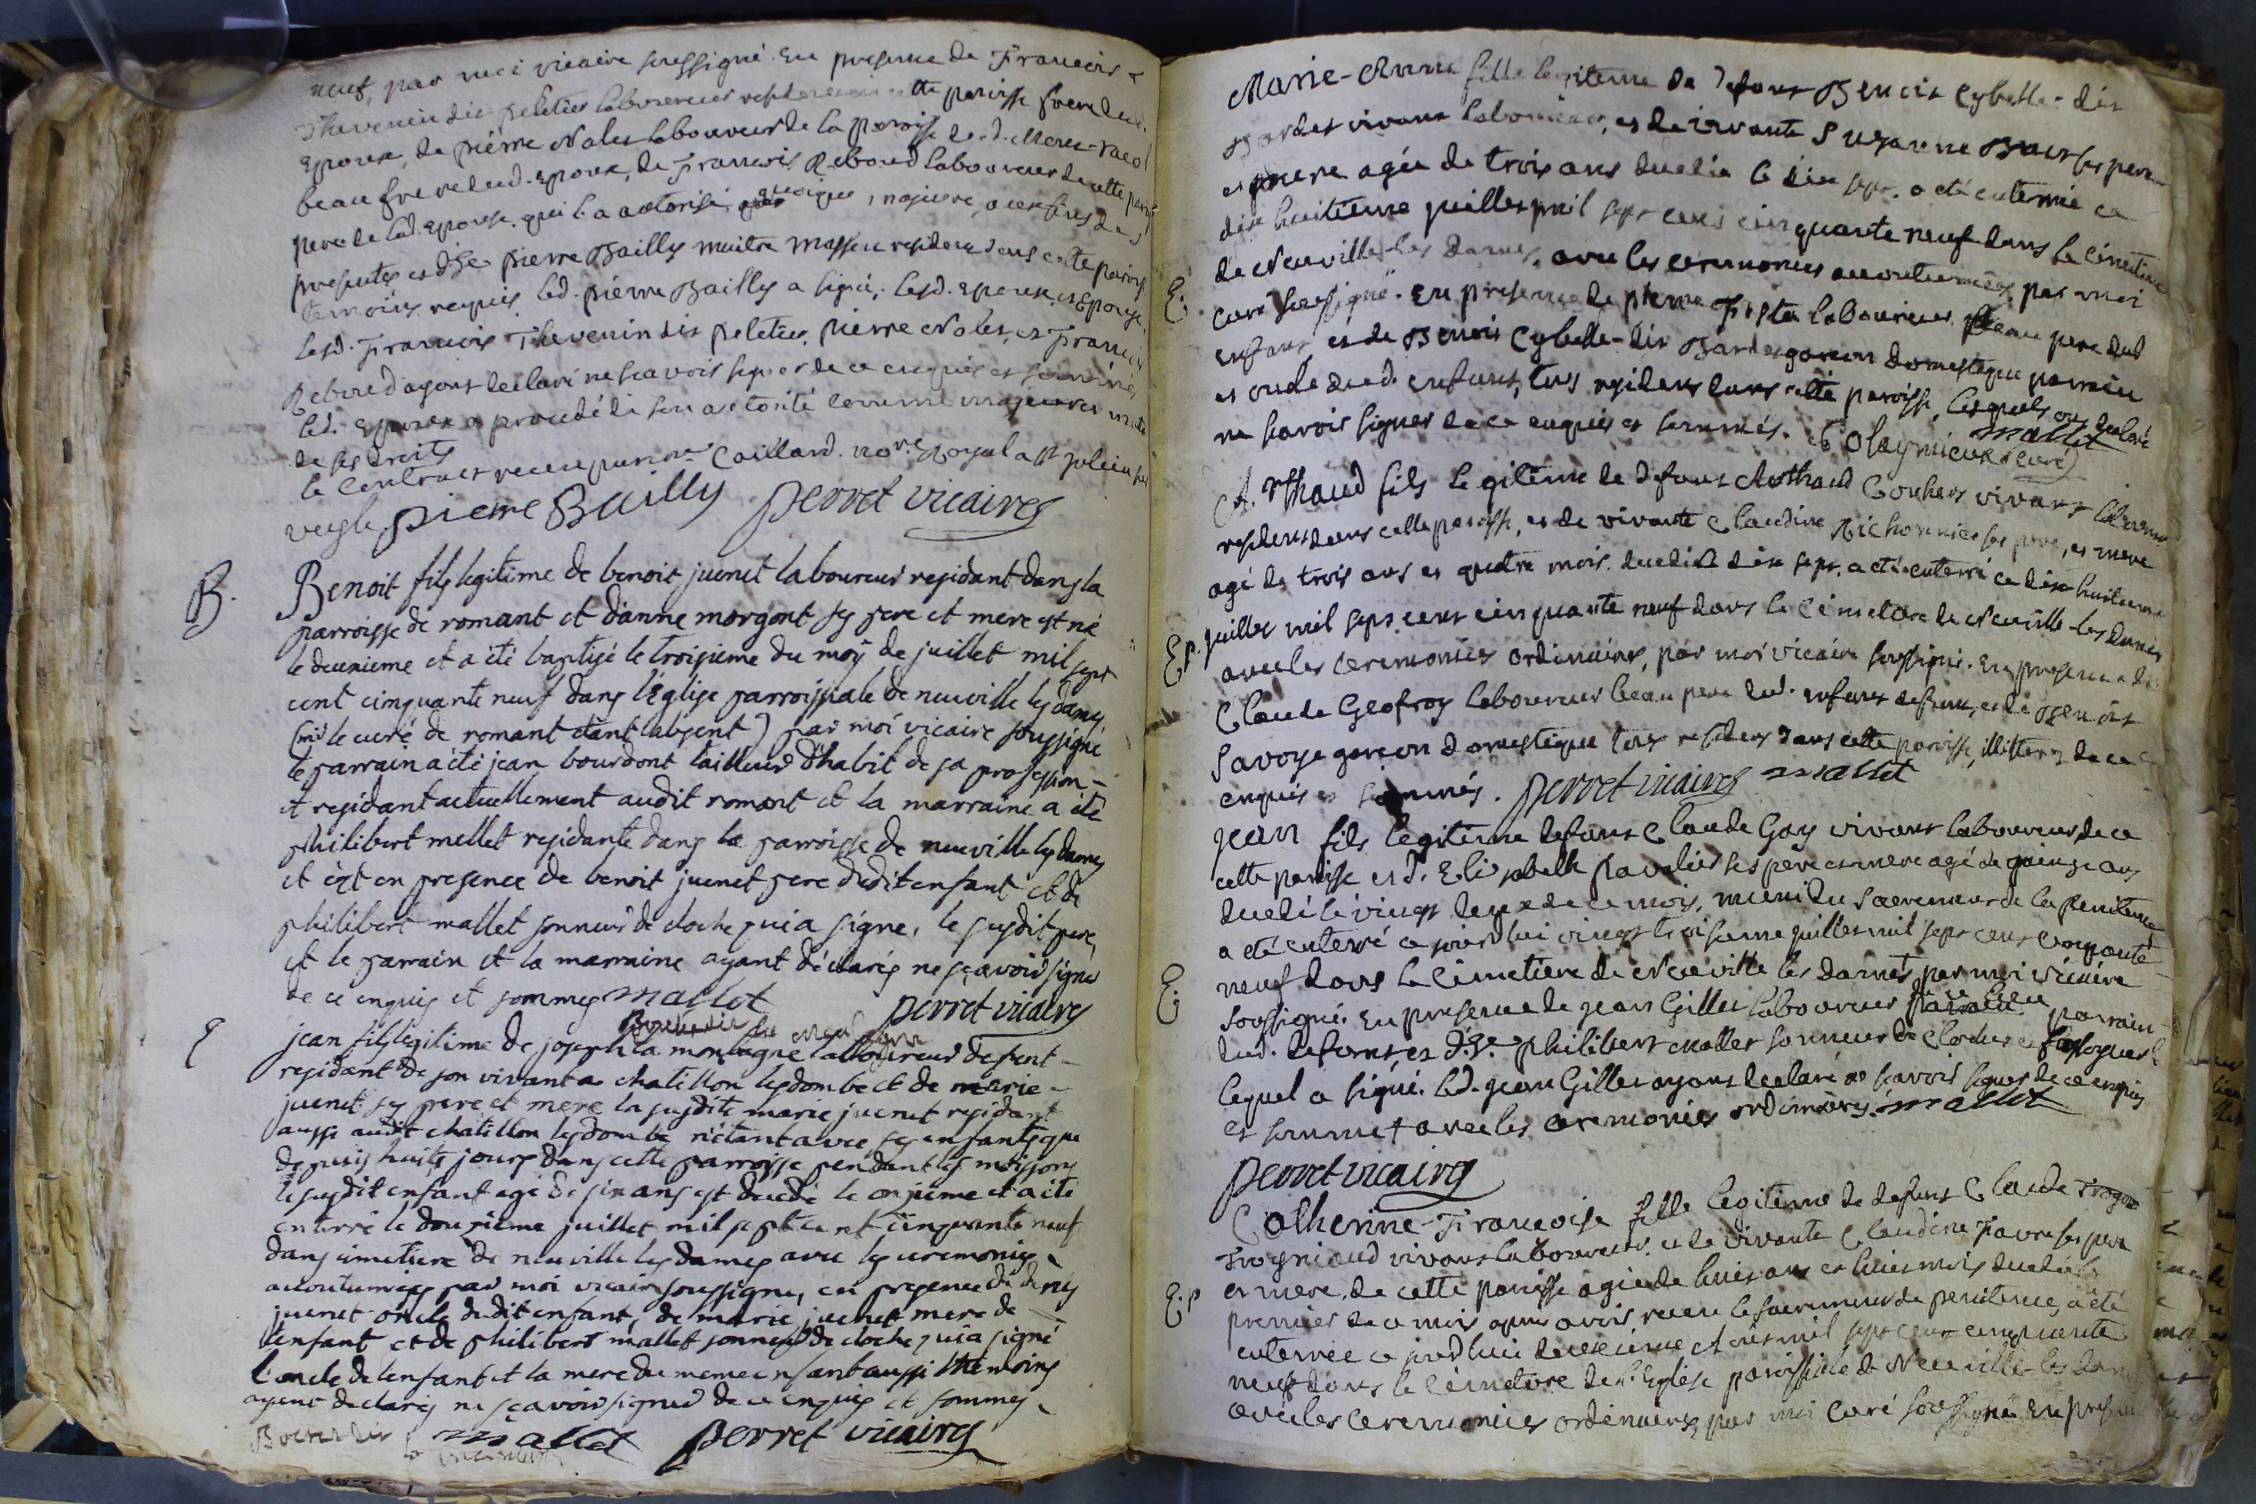 neuf, par moi vicaire soussigné. En presence de Francois
Thevenin dit peletier laboureur cette paroisse frere dud.
Epoux, de pierre Nalet laboureur de la paroisse de
beau frere dud. Epoux, de Francois Reboud laboureur de cette
pere de lad. Epouse qui l'a autorisé, quoique majeure,
presentes et dsr. pierre Bailly maitre masson resident dans cette paroisse
temoins requis led. pierre Bailly a signé, lesd. Epoux, et Epouse,
lesd. Francois Thevenin dit peletier, pierre Nalet, et Francois
Reboud ayant declaré ne scavoir signer de ce enquis et sommés
led. Epoux a procedé de son autorité comme majeur et
de ses droits
le contract receu par me Caillard no.re Royal a st julien sur
veyle. pierre Bailly perret vicaire
B.
Benoit fils legitime de benoit juenet laboureur residant dans la
parroisse de romant et d'anne morgont ses pere et mere est né
le deuxieme et a été baptisé le troisieme du moy de juillet mil sept
cent cinquante neuf dans l'Église parroissiale de neuville les dames
(mr le curé de romant etant absent) par moi vicaire soussigné
le parrain a été jean bourdont tailleur d'habit de sa profession
et residant actuellement audit romant et la marraine a été
philibert mellet residante dans la parroisse de neuville les dames
et cet en presence de benoit juenet pere dudit enfant et de
philibert mallet sonneur de cloche qui a signé, le susdit pere,
et le parrain et la marraine ayant déclarés ne sçavoir signer
de ce enquis et sommes mallet perret vicaire
E
jean fils legitime de joseph la montagne laboureur defunt
residant de son vivant a chatillon les dombe et de marie
juenet ses pere et mere la susdite marie juenet residant
aussi audit chatillon les dombe n'étant avec ses enfants que
depuis huits jours dans cette parroisse pendant les moissons
le susdit enfant agé de six ans est decedé le onzieme et a été
enterré le douzieme juillet mil sept cent cinquante neuf
dans cimetiere de neuville les dames avec les ceremonies
acoutumées par moi vicair soussigné, en presence de denis
juenet oncle dudit enfant, de marie juenet mere de
l'enfant et de philibert mallet sonneur de cloche qui a signé
l'oncle de l'enfant et la mere du meme enfant aussi themoins
ayant declarés ne sçavoir signer de ce enquis et sommes
mallet perret vicaire
Marie-Anne fille legitime de defunt Benoit Cybelle-dit
Bardet vivant laboureur, et de vivante Suzanne ses pere
et mere agée de trois ans decedée le dix sept a eté enterrée ce
dix huitieme juillet mil sept cens cinquante neuf dans le cimetiere
de Neuville-les dames, avec les ceremonies accoutumées, par moi
E.
curé soussigné. En presence de pierre laboureur beau pere dud
enfant et de Benoit Cybelle-dit Bardet garcon domestique parrain
et oncle dud. enfant, tous residents dans cette paroisse, lesquels ont declaré
ne scavoir signer de ce enquis et sommés. mallet
curé
Arthaud fils legitime de defunt Arthaud vivant laboureur
resident dans cette paroisse, et de vivante Claudine Richonnier ses pere, et mere
agé de trois ans et quatre mois. decedé le dix sept, a eté enterré ce dix huitieme
E.P.
juillet mil sept cent cinquante neuf dans le cimetiere de Neuville-les dames
avec les ceremonies ordinaires, par moi vicaire soussigné. En presence de
Claude Geofroy laboureur beau pere dud. enfant defunt, et de Benoit
Savoye garcon domestique tous residens dans cette paroisse, illitterez de ce
enquis et sommés. perret vicaire mallet
jean fils legitime defunt Claude Gay vivant laboureur de ce
cette paroisse et d. Elisabeth pavalier ses pere et mere agé de quinze ans
decedé le vingt deux de ce mois, muni du sacrement de la penitence
a eté enterré ce jourd'hui vingt troisieme juillet mil sept cens cinquante
E.
neuf dans le Cimetiere de Neuville les dames, par moi vicaire
soussigné. En presence de jean Gillet laboureur parrain
dud. defunt et d.sr. philibert mallet sonneur de Cloches et
lequel a signé. led. jean Gillet ayant declaré ne scavoir signer de ce enquis
et sommé avec les ceremonies ordinaires. mallet
perret vicaire
Catherine-Francoise fille legitime de defunt Claude
Frogniaud vivant laboureur et de vivante Claudine Favre ses pere
et mere, de cette paroisse agée de huit ans et huit mois decedée le
E.P
premier de ce mois apres avoir receu le sacrement de penitence, a eté
enterrée ce jourd'hui deuxieme Aout mil sept cent cinquante
neuf dans le Cimetiere de l'Eglise paroissiale de Neuville les dam
avec les Ceremonies ordinaires, par moi curé soussigné En presen